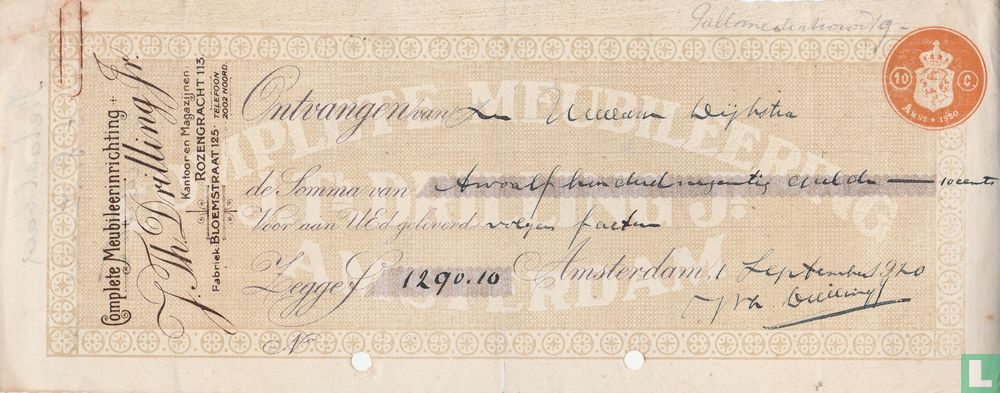 Complete Meubileerinrichting
J. Th. Drilling Jr.
Kantoor en Magazijnen
ROZENGRACHT 113.
Fabriek BLOEMSTRAAT 125 · TELEFOON 2002 NOORD.
COMPLETE MEUBILEERING
AMSTERDAM
10 C
AMST * 1920
Ontvangen van Willem Dijkstra
de Somma van Twaalf honderd negentig gulden — 10 cents
Voor aan UEd geleverd volgens factuur
Zegge ƒ 1290.10 Amsterdam, 1 September 1920
J Th Drilling Jr
No
L